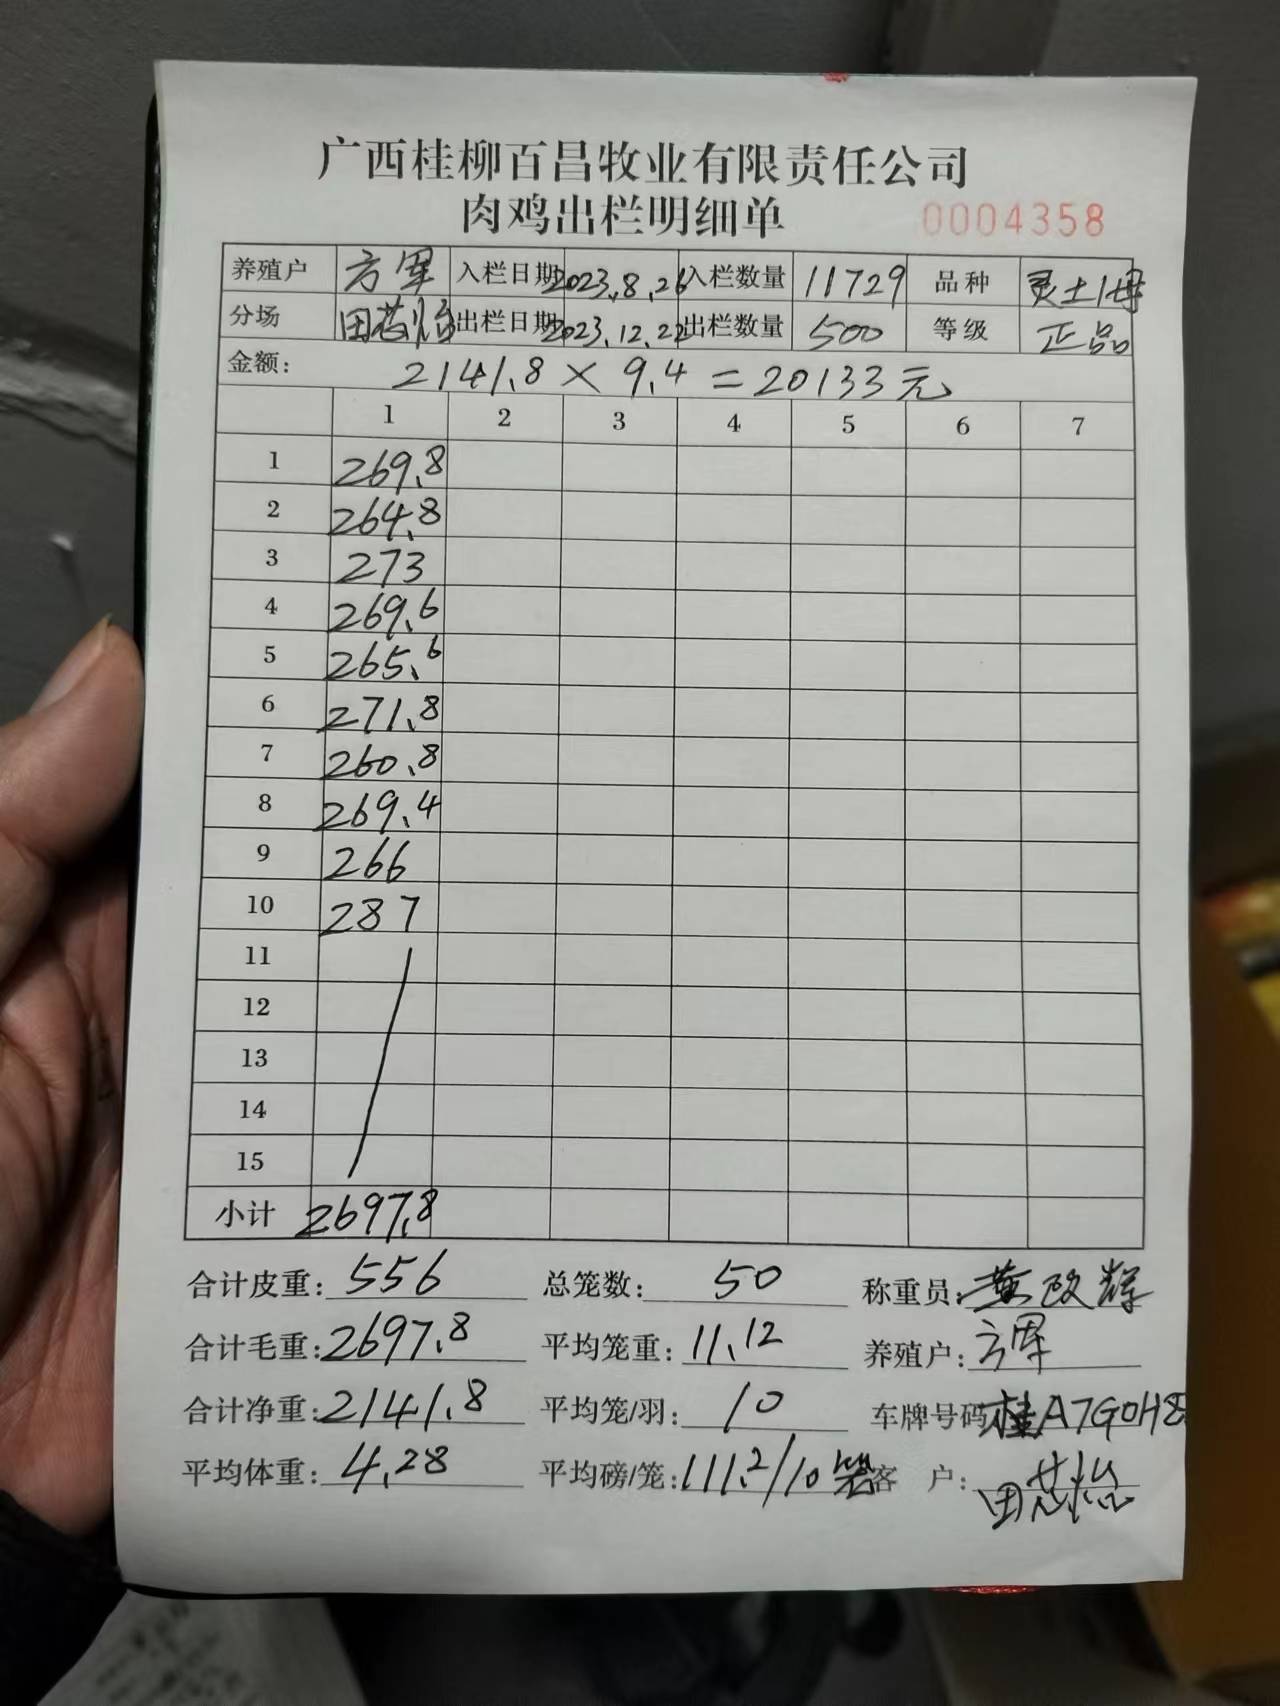 广西桂柳百昌牧业有限责任公司
肉鸡出栏明细单 0004358
养殖户 方军 入栏日期 2023.8.26 入栏数量 11729 品种 灵土1母
分场 田芯怡 出栏日期 2023.12.22 出栏数量 500 等级 正品
金额: 2141.8 × 9.4 = 20133元
1 2 3 4 5 6 7
1 269.8
2 264.8
3 273
4 269.6
5 265.6
6 271.8
7 260.8
8 269.4
9 266
10 287
11
12
13
14
15
小计 2697.8
合计皮重: 556 总笼数: 50 称重员: 黄政辉
合计毛重: 2697.8 平均笼重: 11.12 养殖户: 方军
合计净重: 2141.8 平均笼/羽: 10 车牌号码 桂A7G0H8
平均体重: 4.28 平均磅/笼: 111.2/10笼 客 户: 田芯怡